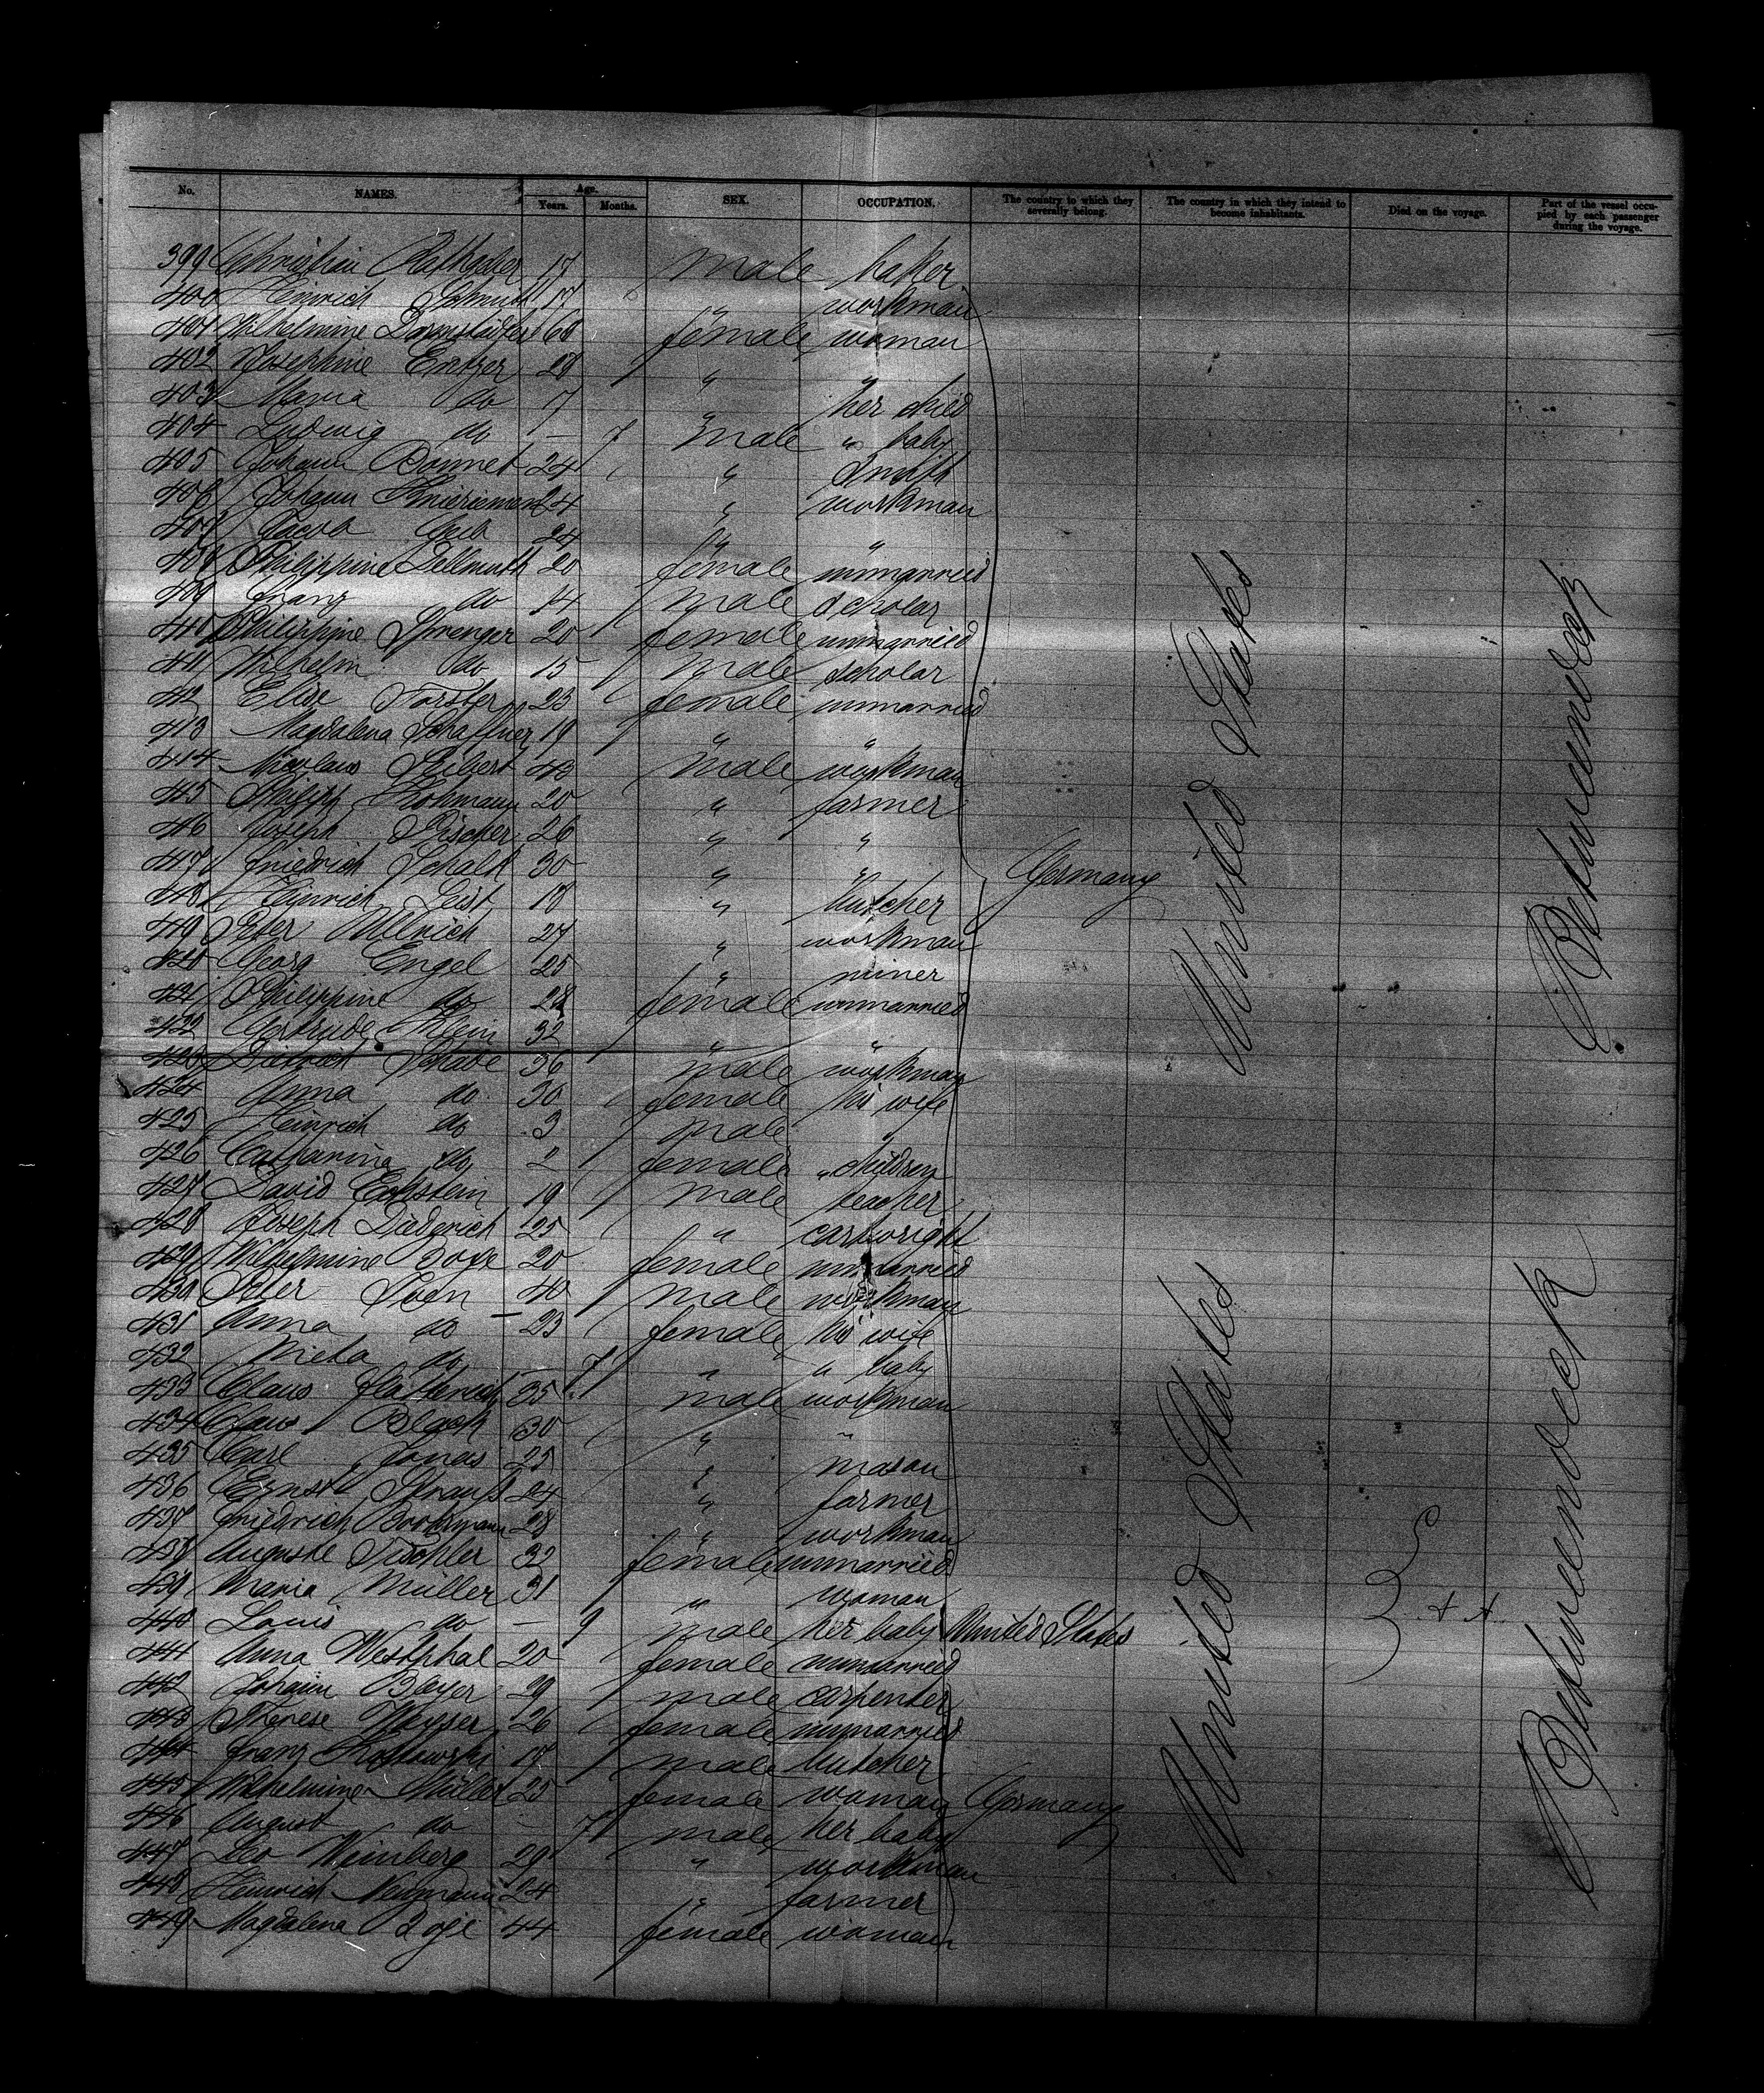 No. NAMES. Age. Years. Months. SEX. OCCUPATION. The country to which they severally belong. The country in which they intend to become inhabitants. Died on the voyage. Part of the vessel occupied by each passenger during the voyage.
399 Christian 17 male baker
400 Heinrich Schmidt 17 " workman
401 Wilhelmine Darmstädter 68 female woman
402 Josephine 28 " "
403 Maria do 17 " her child
404 Ludwig do - 7 male " baby
405 Johann Bonnet 24 " Smith
406 Johann Knieriemen 24 " workman
407 Jacob Geib 24 " "
408 Philippine Dellmuth 20 female unmarried
409 Franz do 14 male scholar
410 Philippine Sprenger 20 female unmarried
411 Wilhelm do 15 male scholar
412 Elise Forster 23 female unmarried
413 Magdalena Schaffner 19 " "
414 Nicolaus Seibert 43 male workman
415 Philipp Hohmann 20 " farmer
416 Joseph Discher 26 " "
417 Friedrich Schalk 30 " "
418 Heinrich Leist 18 " butcher
419 Peter Ullrich 27 " workman
420 Georg Engel 25 " miner
421 Philippine do 28 female unmarried
422 Gertrude Klein 32 " "
423 Dietrich Schade 36 male workman
424 Anna do 30 female his wife
425 Heinrich do 3 male "
426 Catharina do 2 female " children
427 David Eckstein 19 male teacher
428 Joseph Diederich 25 " cartwright
429 Wilhelmine Boye 20 female unmarried
430 Peter Sven 40 male workman
431 Anna do 23 female his wife
432 Meta do 7 " " baby
433 Claus 35 male workman
434 Claus Block 30 " "
435 Carl Jonas 25 " mason
436 Ernst Strauß 24 " farmer
437 Friedrich Bookmann 28 " workman
438 Auguste Tischler 32 female unmarried
439 Maria Müller 31 " woman
440 Louis do - 9 male her baby United States
441 Anna Westphal 20 female unmarried
442 Johann Blayer 29 male carpenter
443 Therese 26 female unmarried
444 Franz 17 male butcher
445 Wilhelmine Müller 25 female woman
446 August do - 7 male her baby
447 Leo Weinberg 29 " workman
448 Heinrich Neumann 24 " farmer
449 Magdalena Boje 44 female woman
Germany
Germany
United States
United States
Betweendeck
Betweendeck